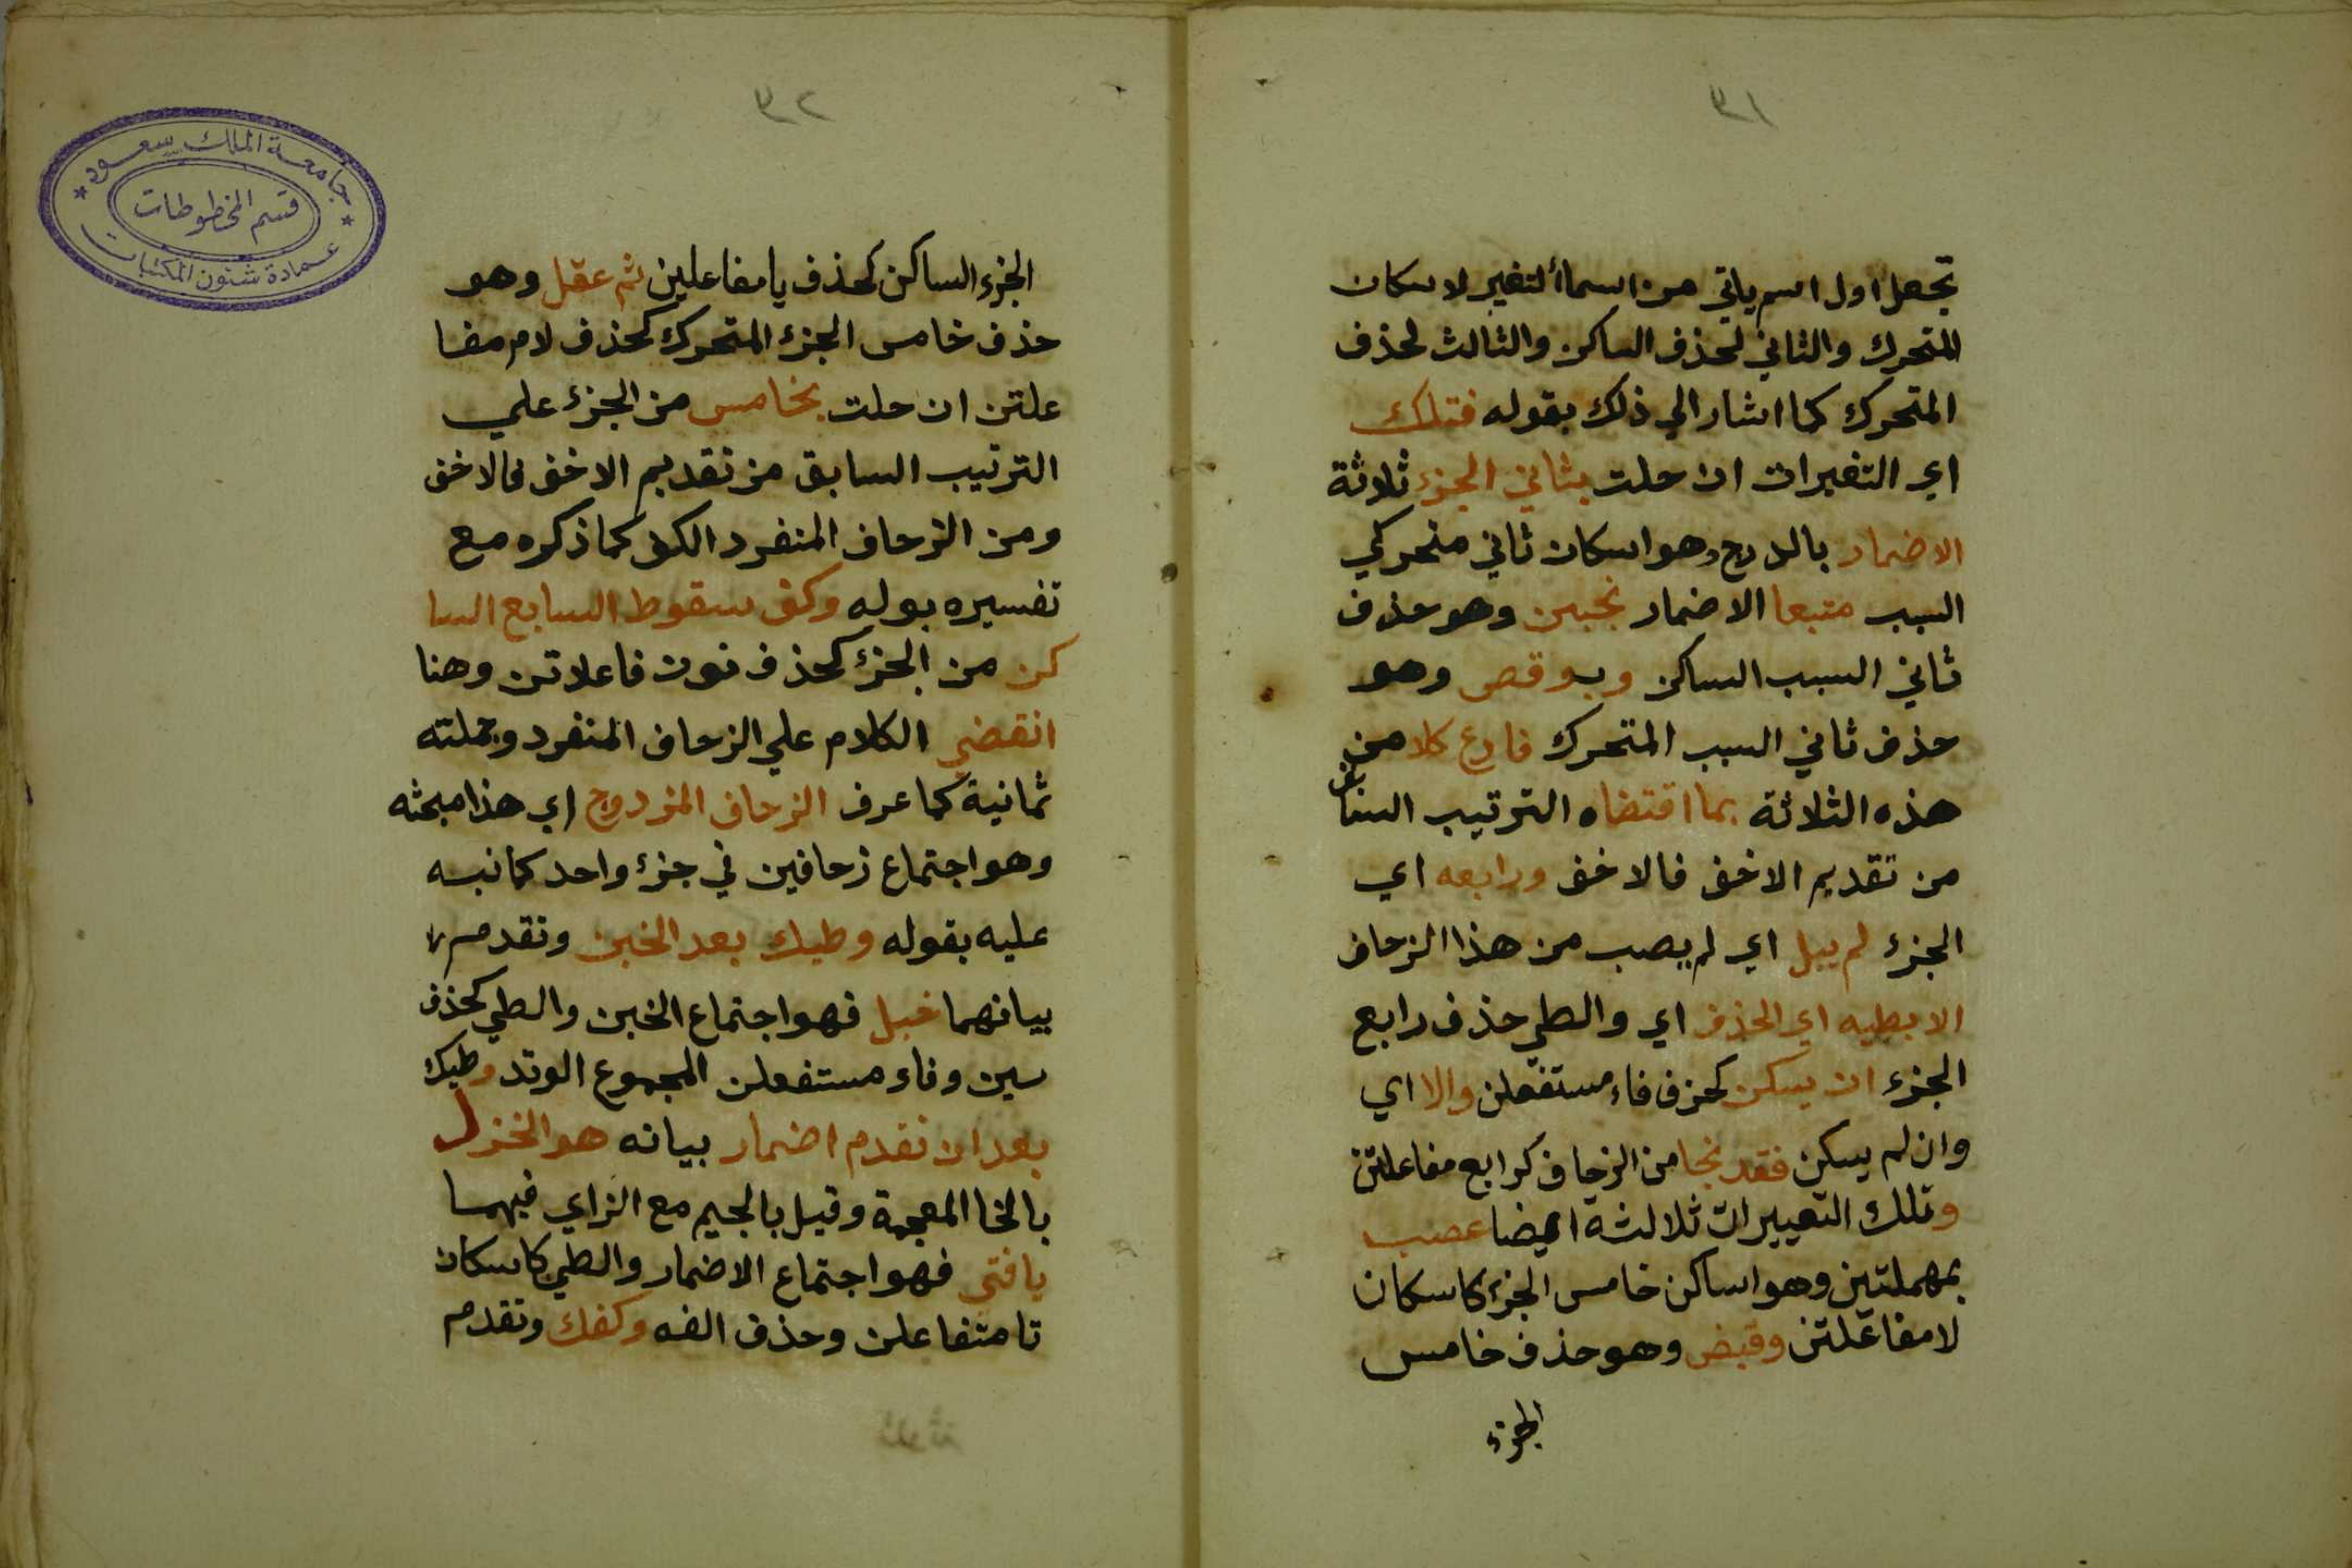 ٣١
تجعل اول اسم ياتي من اسمأ التغير لاسكان
المتحرك والثاني لحذف الساكن والثالث لحذف
المتحرك كما اشار الي ذلك بقوله فتلك
اي التغيرات ان حلت بثاني الجزء ثلاثة
الاضمار بالدرج وهو اسكان ثاني متحركي
السبب متبعا الاضمار بخبن وهو حذف
ثاني السبب الساكن وبوقص وهو
حذف ثاني السبب المتحرك فارع كلا من
هذه الثلاثة بما اقتضاه الترتيب السابق
من تقديم الاخف فالاخف ورابعه اي
الجزء لم يبل اي لم يصب من هذا الزحاف
الا بطيه اي الحذف اي والطي حذف رابع
الجزء ان يسكن كحزف فاء مستفعلن والا اي
وان لم يسكن فقد نجا من الزحاف كرابع مفاعلتن
وتلك التغييرات ثلالثة ايضا عصب
بمهملتين وهو اساكن خامس الجزء كاسكان
لا مفاعلتن وقبض وهو حذف خامس
الجزء
٣٢
الجزء الساكن كحذف يا مفاعلين ثم عقل وهو
حذف خامس الجزء المتحرك كحذف لام مفا
علتن ان حلت بخامس من الجزء علي
الترتيب السابق من تقديم الاخف فالاخف
ومن الزحاف المنفرد الكف كما ذكره مع
تفسيره بوله وكف سقوط السابع السا
كن من الجزء كحذف نون فاعلاتن وهنا
انقضي الكلام علي الزحاف المنفرد وجملته
ثمانية كما عرف الزحاف المزدوج اي هذا مبحثه
وهو اجتماع زحافين في جزء واحد كما نبه
عليه بقوله وطيك بعد الخبن وتقدم
بيانهما خبل فهو اجتماع الخبن والطي كحذف
سين وفاء مستفعلن المجموع الوتد وطيك
بعد ان تقدم اضمار بيانه هو الخزل
بالخا المعجمة وقيل بالجيم مع الزاي فيهما
يا فتي فهو اجتماع الاضمار والطي كاسكان
تا متفاعلن وحذف الفه وكفك وتقدم
جامعة الملك سعود
قسم المخطوطات
عمادة شئون المكتبات